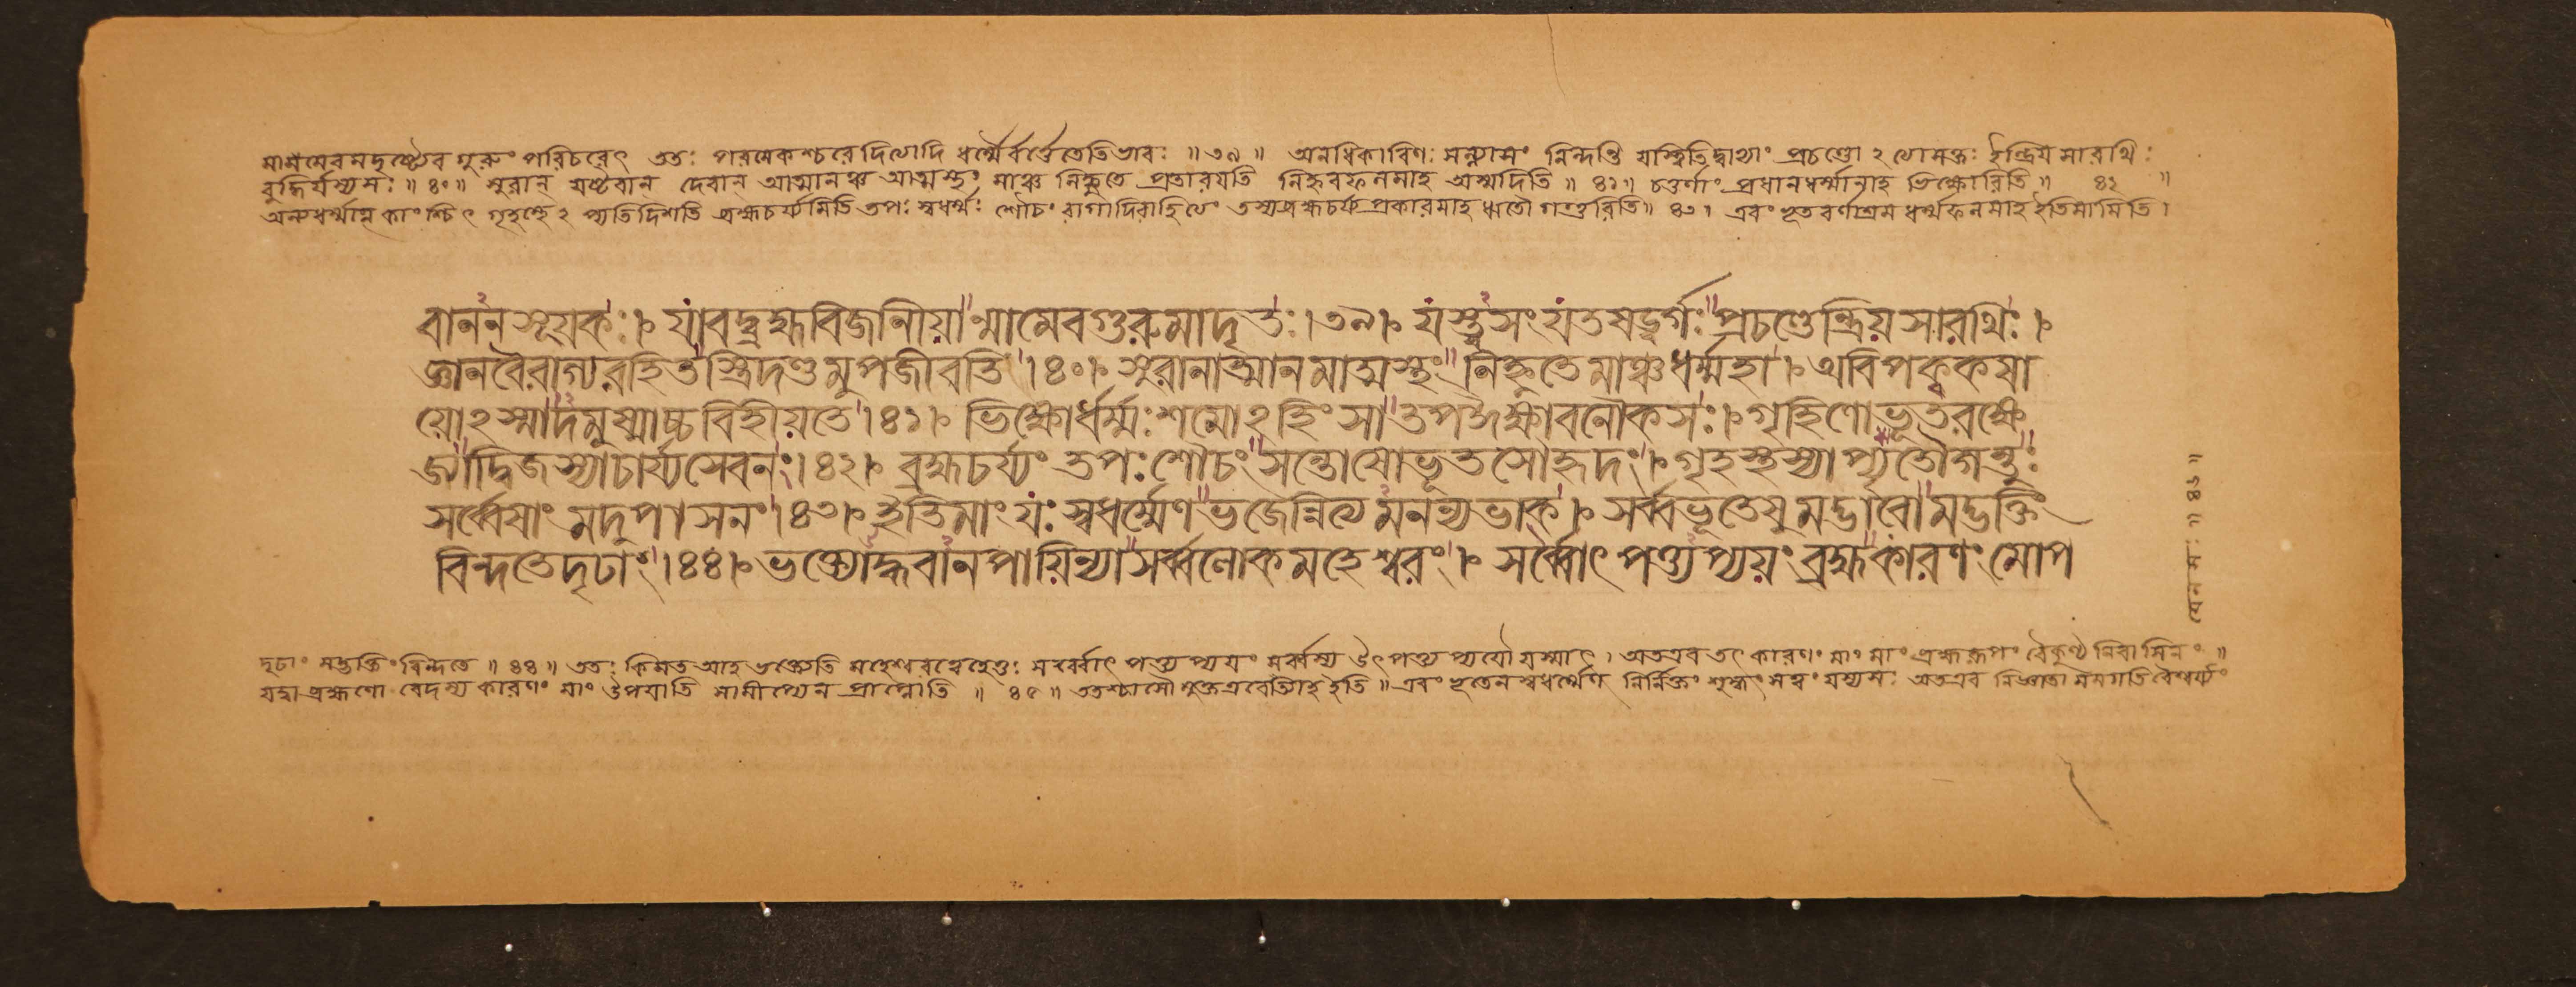 মামেবমদৃষ্ট্যেব গুরুং পরিচরেৎ ততঃ পরমেকশ্চরেদিত্যাদি ধর্ম্মৈর্বর্ত্তেতেতিভাবঃ ॥ ৩৯ ॥ অনধিকারিণঃ সন্ন্যাসং নিন্দতি যস্ত্বিতিদ্বাভ্যাং প্রচণ্ডো ঽ ত্যাসক্তঃ ইন্দ্রিয় সারথিঃ
বুদ্ধির্যস্যসঃ ॥ ৪০ ॥ সুরান্ যষ্টব্যান্ দেবান্ আত্মানঞ্চ আত্মস্থং মাঞ্চ নিহ্নুতে প্রতারয়তি নিহ্নবফলমাহ অস্মাদিতি ॥ ৪১ ॥ চতুর্ণাং প্রধানধর্ম্মানাহ ভিক্ষোরিতি ॥ ৪২ ॥
অন্যধর্ম্মান্ কাংশ্চিৎ গৃহস্থে ঽ প্যতিদিশতি ব্রহ্মচর্য্যমিতি তপঃ স্বধর্ম্মঃ শৌচং রাগাদিরাহিত্যং তস্যব্রহ্মচর্য্য প্রকারমাহ ঋতৌ গন্তুরিতি ॥ ৪৩ । এবং ভূত বর্ণাশ্রম ধর্ম্মফলমাহ ইতিমামিতি ।
বাননসূয়কঃ । যাবদ্ব্রহ্মবিজানিীয়ান্মামেবগুরুমাদৃতঃ । ৩৯ । যস্ত্বসংযতষড়্বর্গঃ প্রচণ্ডেন্দ্রিয়সারথিঃ ।
জ্ঞানবৈরাগ্যরহিতস্ত্রিদণ্ডমুপজীবতি । ৪০ । সুরানাত্মানমাত্মস্থং নিহ্নুতে মাঞ্চধর্ম্মহা । অবিপক্বকষা
য়োঽস্মাদমুষ্মাচ্চবিহীয়তে । ৪১ । ভিক্ষোর্ধর্ম্মঃ শমোঽহিংসা তপঈক্ষাবনৌকসঃ । গৃহিণোভূতরক্ষে
জ্যাদ্বিজস্যাচার্য্যসেবনং । ৪২ । ব্রহ্মচর্য্যং তপঃ শৌচং সন্তোষোভূতসৌহৃদং । গৃহস্থস্যাপ্যৃতৌগন্তুঃ
সর্ব্বেষাং মদুপাসনং । ৪৩ । ইতিমাং যঃ স্বধর্ম্মেণভজেন্নিত্যমনন্যভাক্ । সর্ব্বভূতেষুমদ্ভাবোমদ্ভক্তিং
বিন্দতেদৃঢাং । ৪৪ । ভক্ত্যোদ্ধবানপায়িন্যাসর্ব্বলোকমহেশ্বরং । সর্ব্বোৎপত্ত্যপ্যয়ং ব্রহ্মকারণং মোপ
দৃঢাং মদ্ভক্তিং বিন্দতে ॥ ৪৪ ॥ ততঃ কিমত আহ ভক্ত্যেতি মহেশ্বরত্বেহেতুঃ সর্ব্বোৎপত্ত্যপ্যয়ং সর্ব্বস্য উৎপত্ত্যপ্যয়ৌ যস্মাৎ । অতএব তৎ কারণং মাং মাং ব্রহ্মরূপং বৈকুণ্ঠ নিবাসিনং ॥
যদ্বা ব্রহ্মণো বেদস্য কারণং মাং উপযাতি সামীপ্যেন প্রাপ্নোতি ॥ ৪৫ ॥ ততশ্চাসৌমুক্তএবেত্যাহ ইতি ॥ এবং ভূতেন স্বধর্ম্মেণ নির্ণিক্তং শুদ্ধং সত্ত্বং যস্যসঃ অতএব নির্জ্ঞাতা মমগতি বৈশ্বর্য্যং